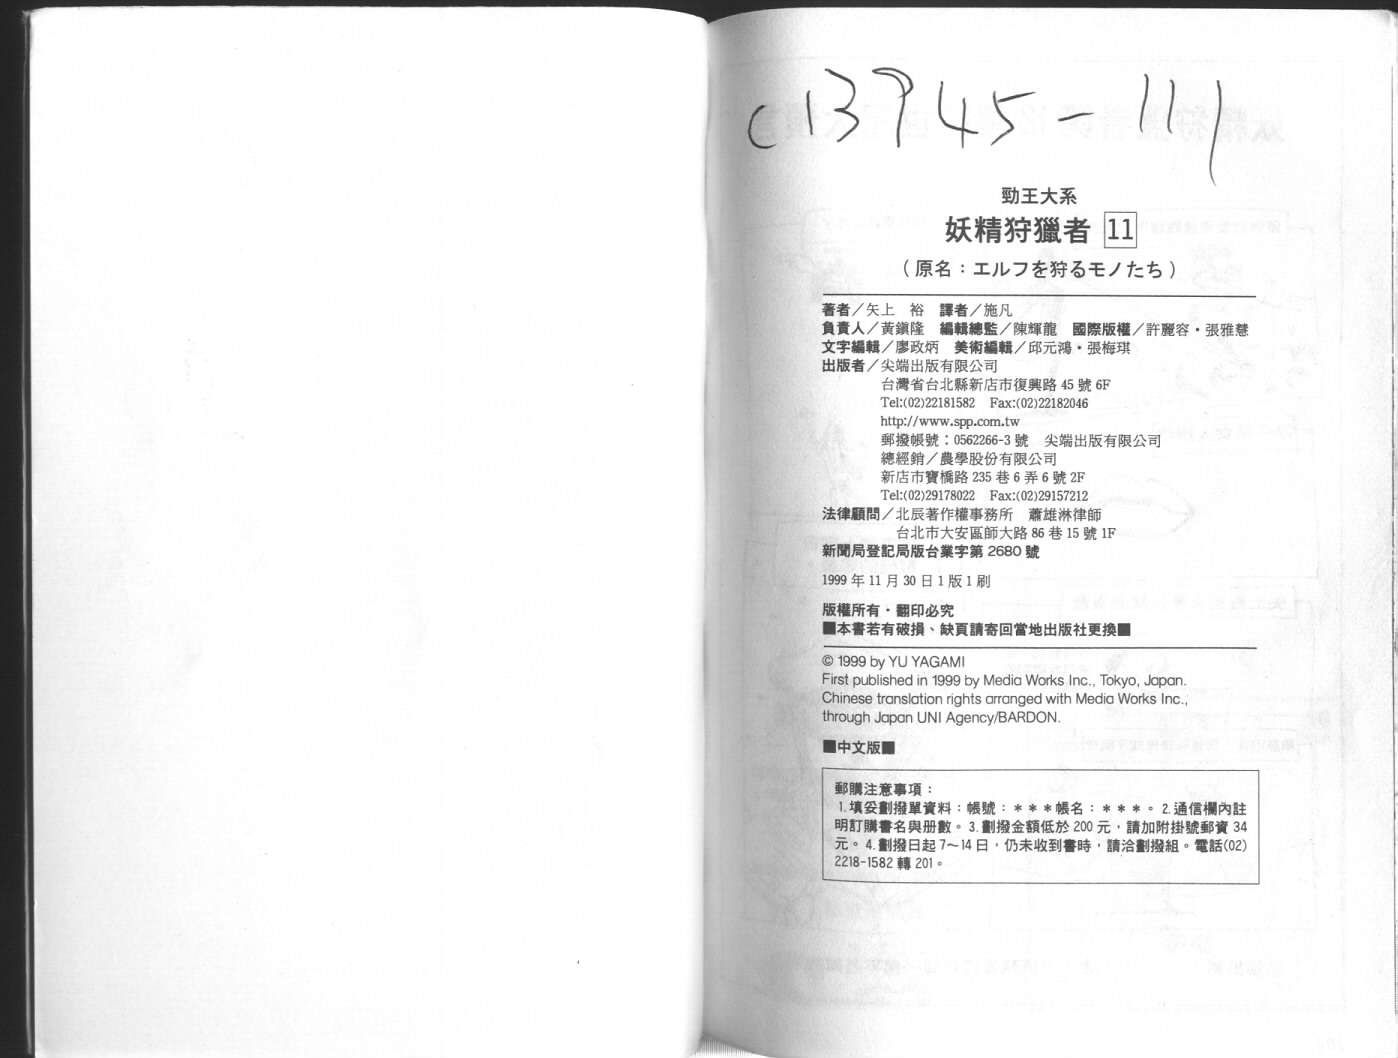 C13945-111
勁王大系
妖精狩獵者 11
（原名：エルフを狩るモノたち）
著者／矢上　裕　譯者／施凡
負責人／黃鎭隆　編輯總監／陳輝龍　國際版權／許麗容・張雅慧
文字編輯／廖政炳　美術編輯／邱元鴻・張梅琪
出版者／尖端出版有限公司
台灣省台北縣新店市復興路 45 號 6F
Tel:(02)22181582　Fax:(02)22182046
http://www.spp.com.tw
郵撥帳號：0562266-3 號　尖端出版有限公司
總經銷／農學股份有限公司
新店市寶橋路 235 巷 6 弄 6 號 2F
Tel:(02)29178022　Fax:(02)29157212
法律顧問／北辰著作權事務所　蕭雄淋律師
台北市大安區師大路 86 巷 15 號 1F
新聞局登記局版台業字第 2680 號
1999 年 11 月 30 日 1 版 1 刷
版權所有・翻印必究
■本書若有破損、缺頁請寄回當地出版社更換■
© 1999 by YU YAGAMI
First published in 1999 by Media Works Inc., Tokyo, Japan.
Chinese translation rights arranged with Media Works Inc.,
through Japan UNI Agency/BARDON.
■中文版■
郵購注意事項：
1.填妥劃撥單資料：帳號：＊＊＊帳名：＊＊＊。2.通信欄內註
明訂購書名與册數。3.劃撥金額低於 200 元，請加附掛號郵資 34
元。4.劃撥日起 7～14 日，仍未收到書時，請洽劃撥組。電話(02)
2218-1582 轉 201。